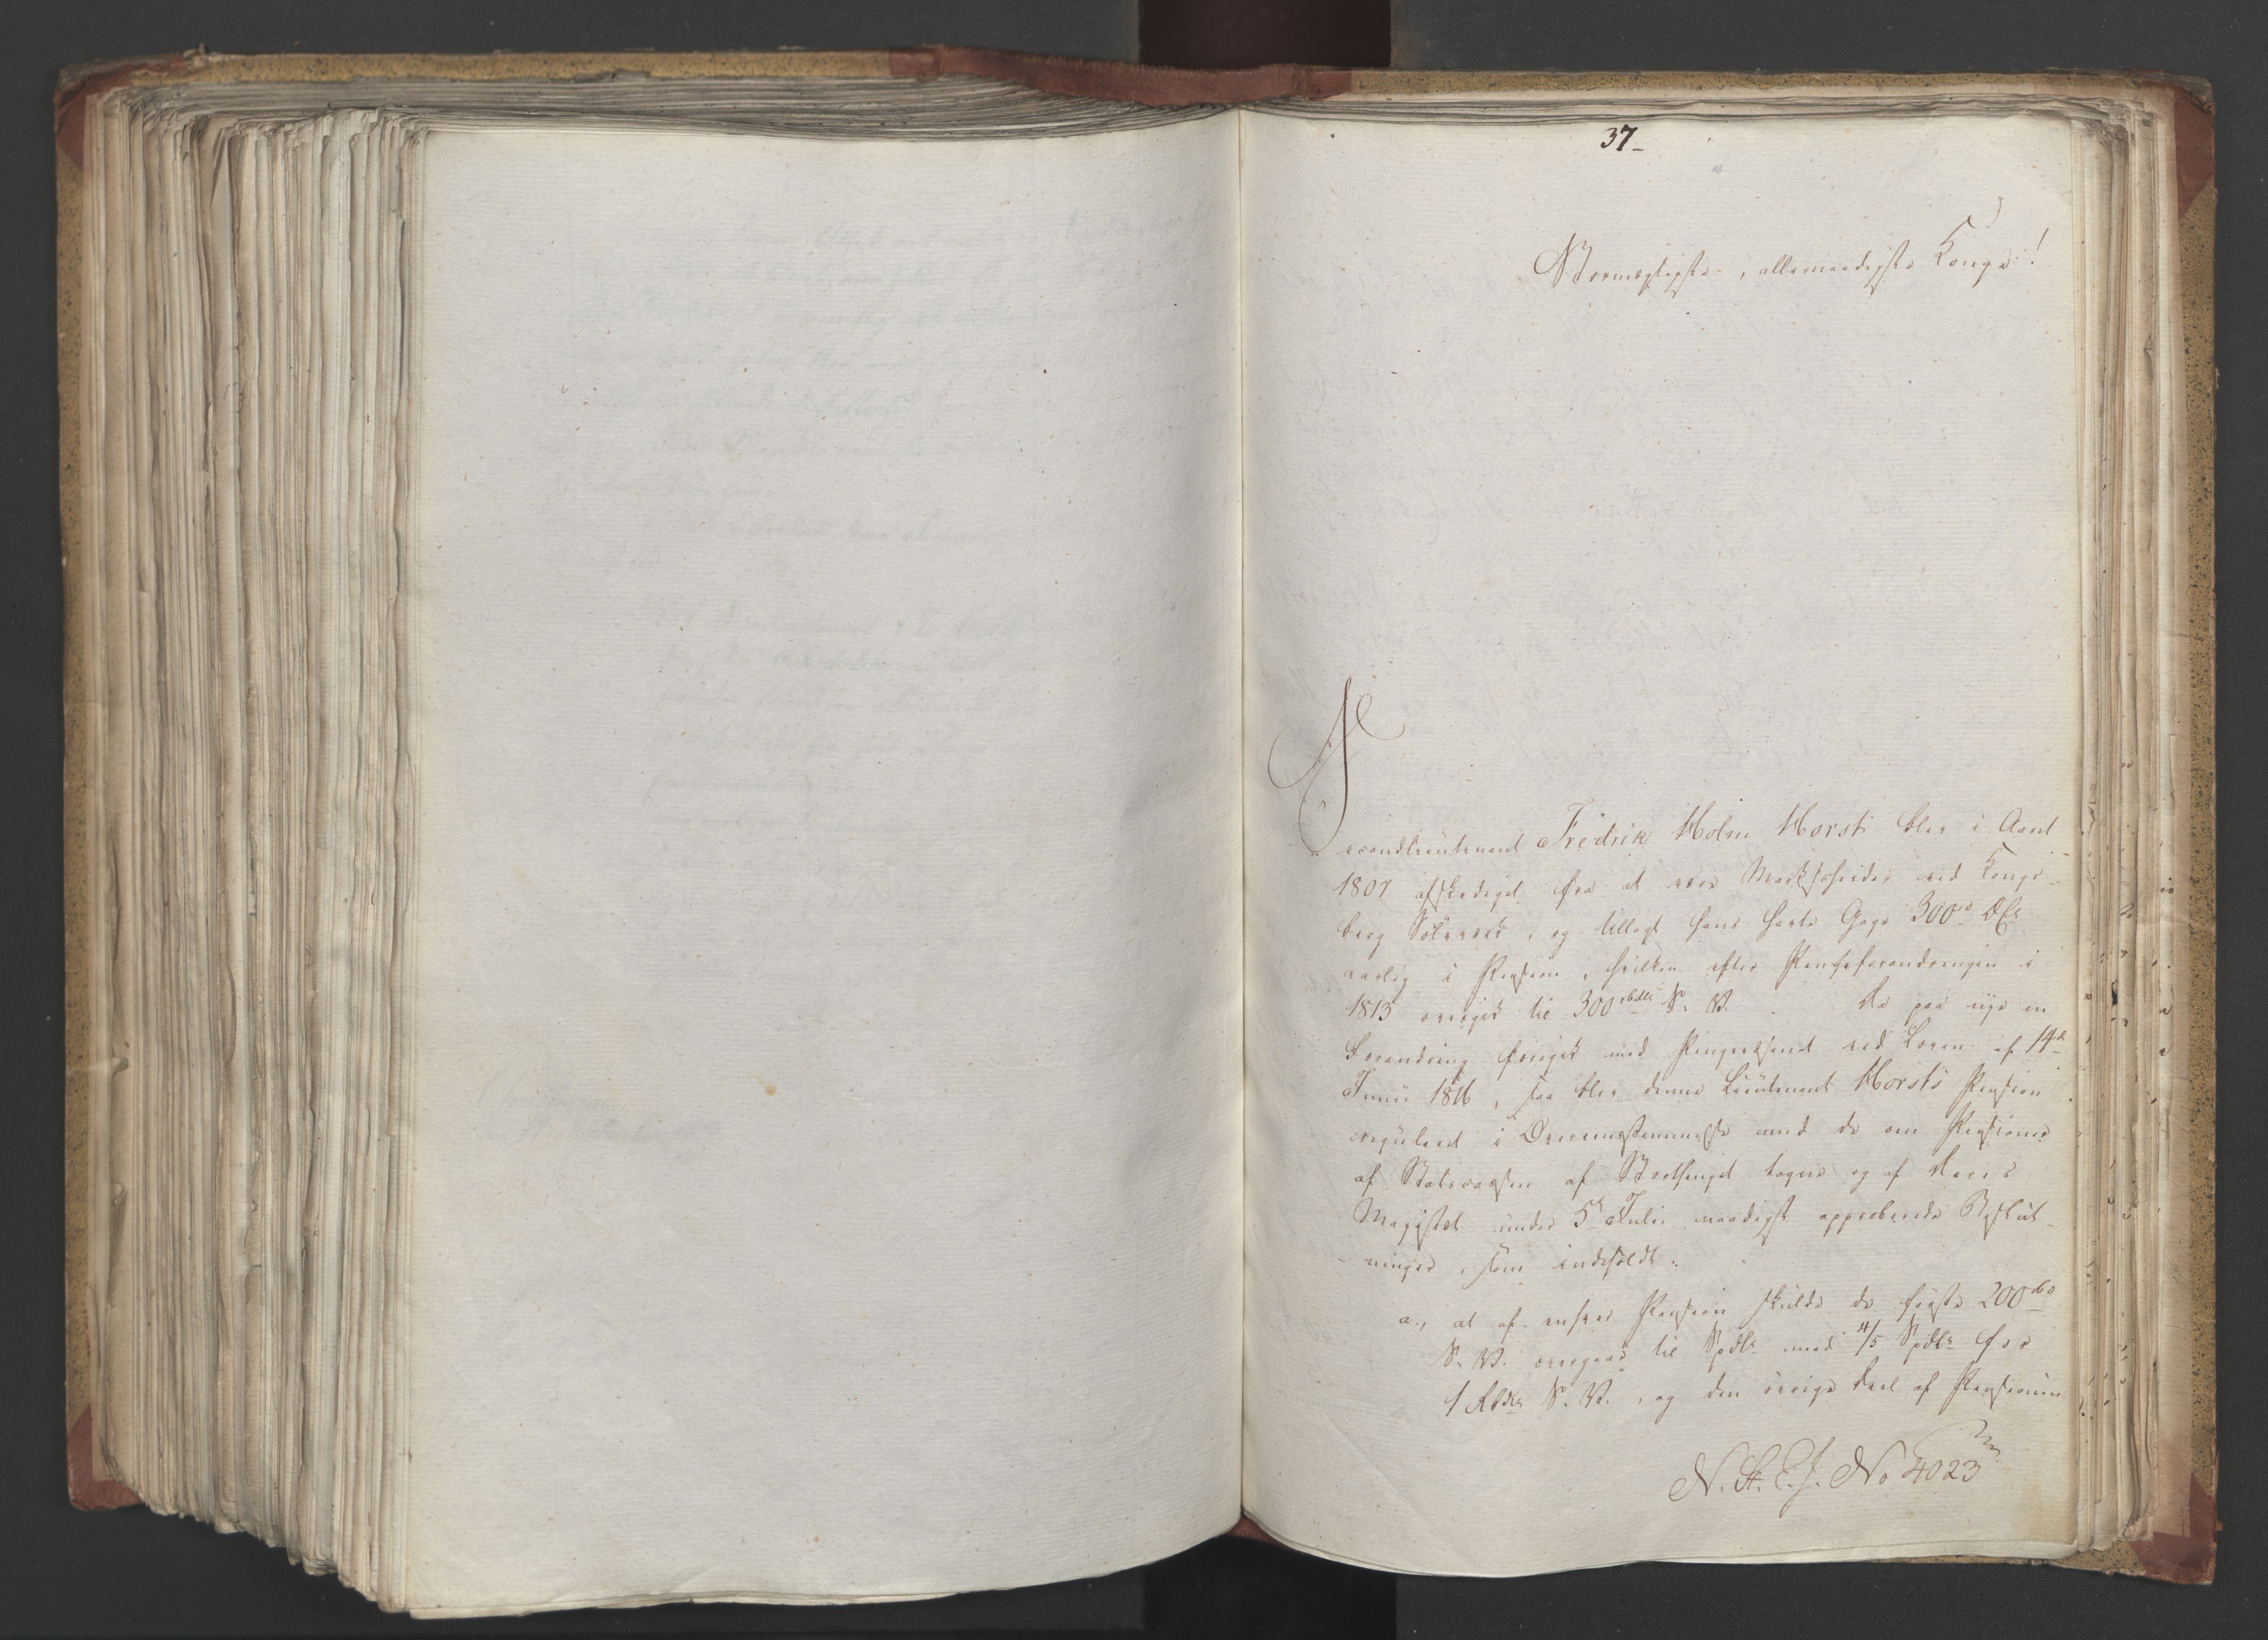 37
Stormægtigste, allernaadigste Konge!
Secondlieutenant Fredrik Holm Horst blev i Aaret
1807 afskediget fra at være Markscheider ved Kongs-
berg Sölvverk, og tillagt hans havte Gage 300de Dlr
aarlig i Pension, hvilken efter Pengeforandringen i
1813 overgik til 300 rbdlr S. V. Da paa nye en
Forandring foregik med Pengevæsenet ved Loven af 14de
Junii 1816, saa blev denne Lieutenant Horsts Pension
reguleret i Overeensstemmelse med de om Pensioner
af Statscassen af Storthinget tagne og af Deres
Majestæt under 5te Julii naadigst approberede Beslut-
ninger, som indeholdt:
a., at af enhver Pension skulde de første 200 rbd
S. V. overgaae til Spdlr med 4/5 Spdlr for
1 Rbdlr S. V., og den övrige Deel af Pensionen
N. St. E. J. No 4023